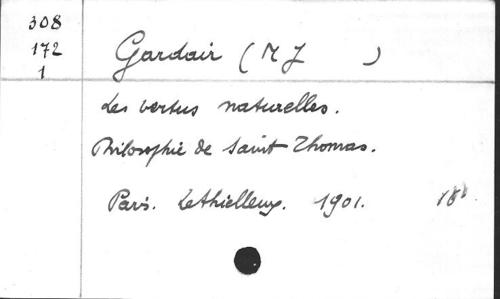 308
172
1
Gardair (M J )
Les vertus naturelles.
Philosophie de Saint Thomas.
Paris. Lethielleux. 1901. 18º.